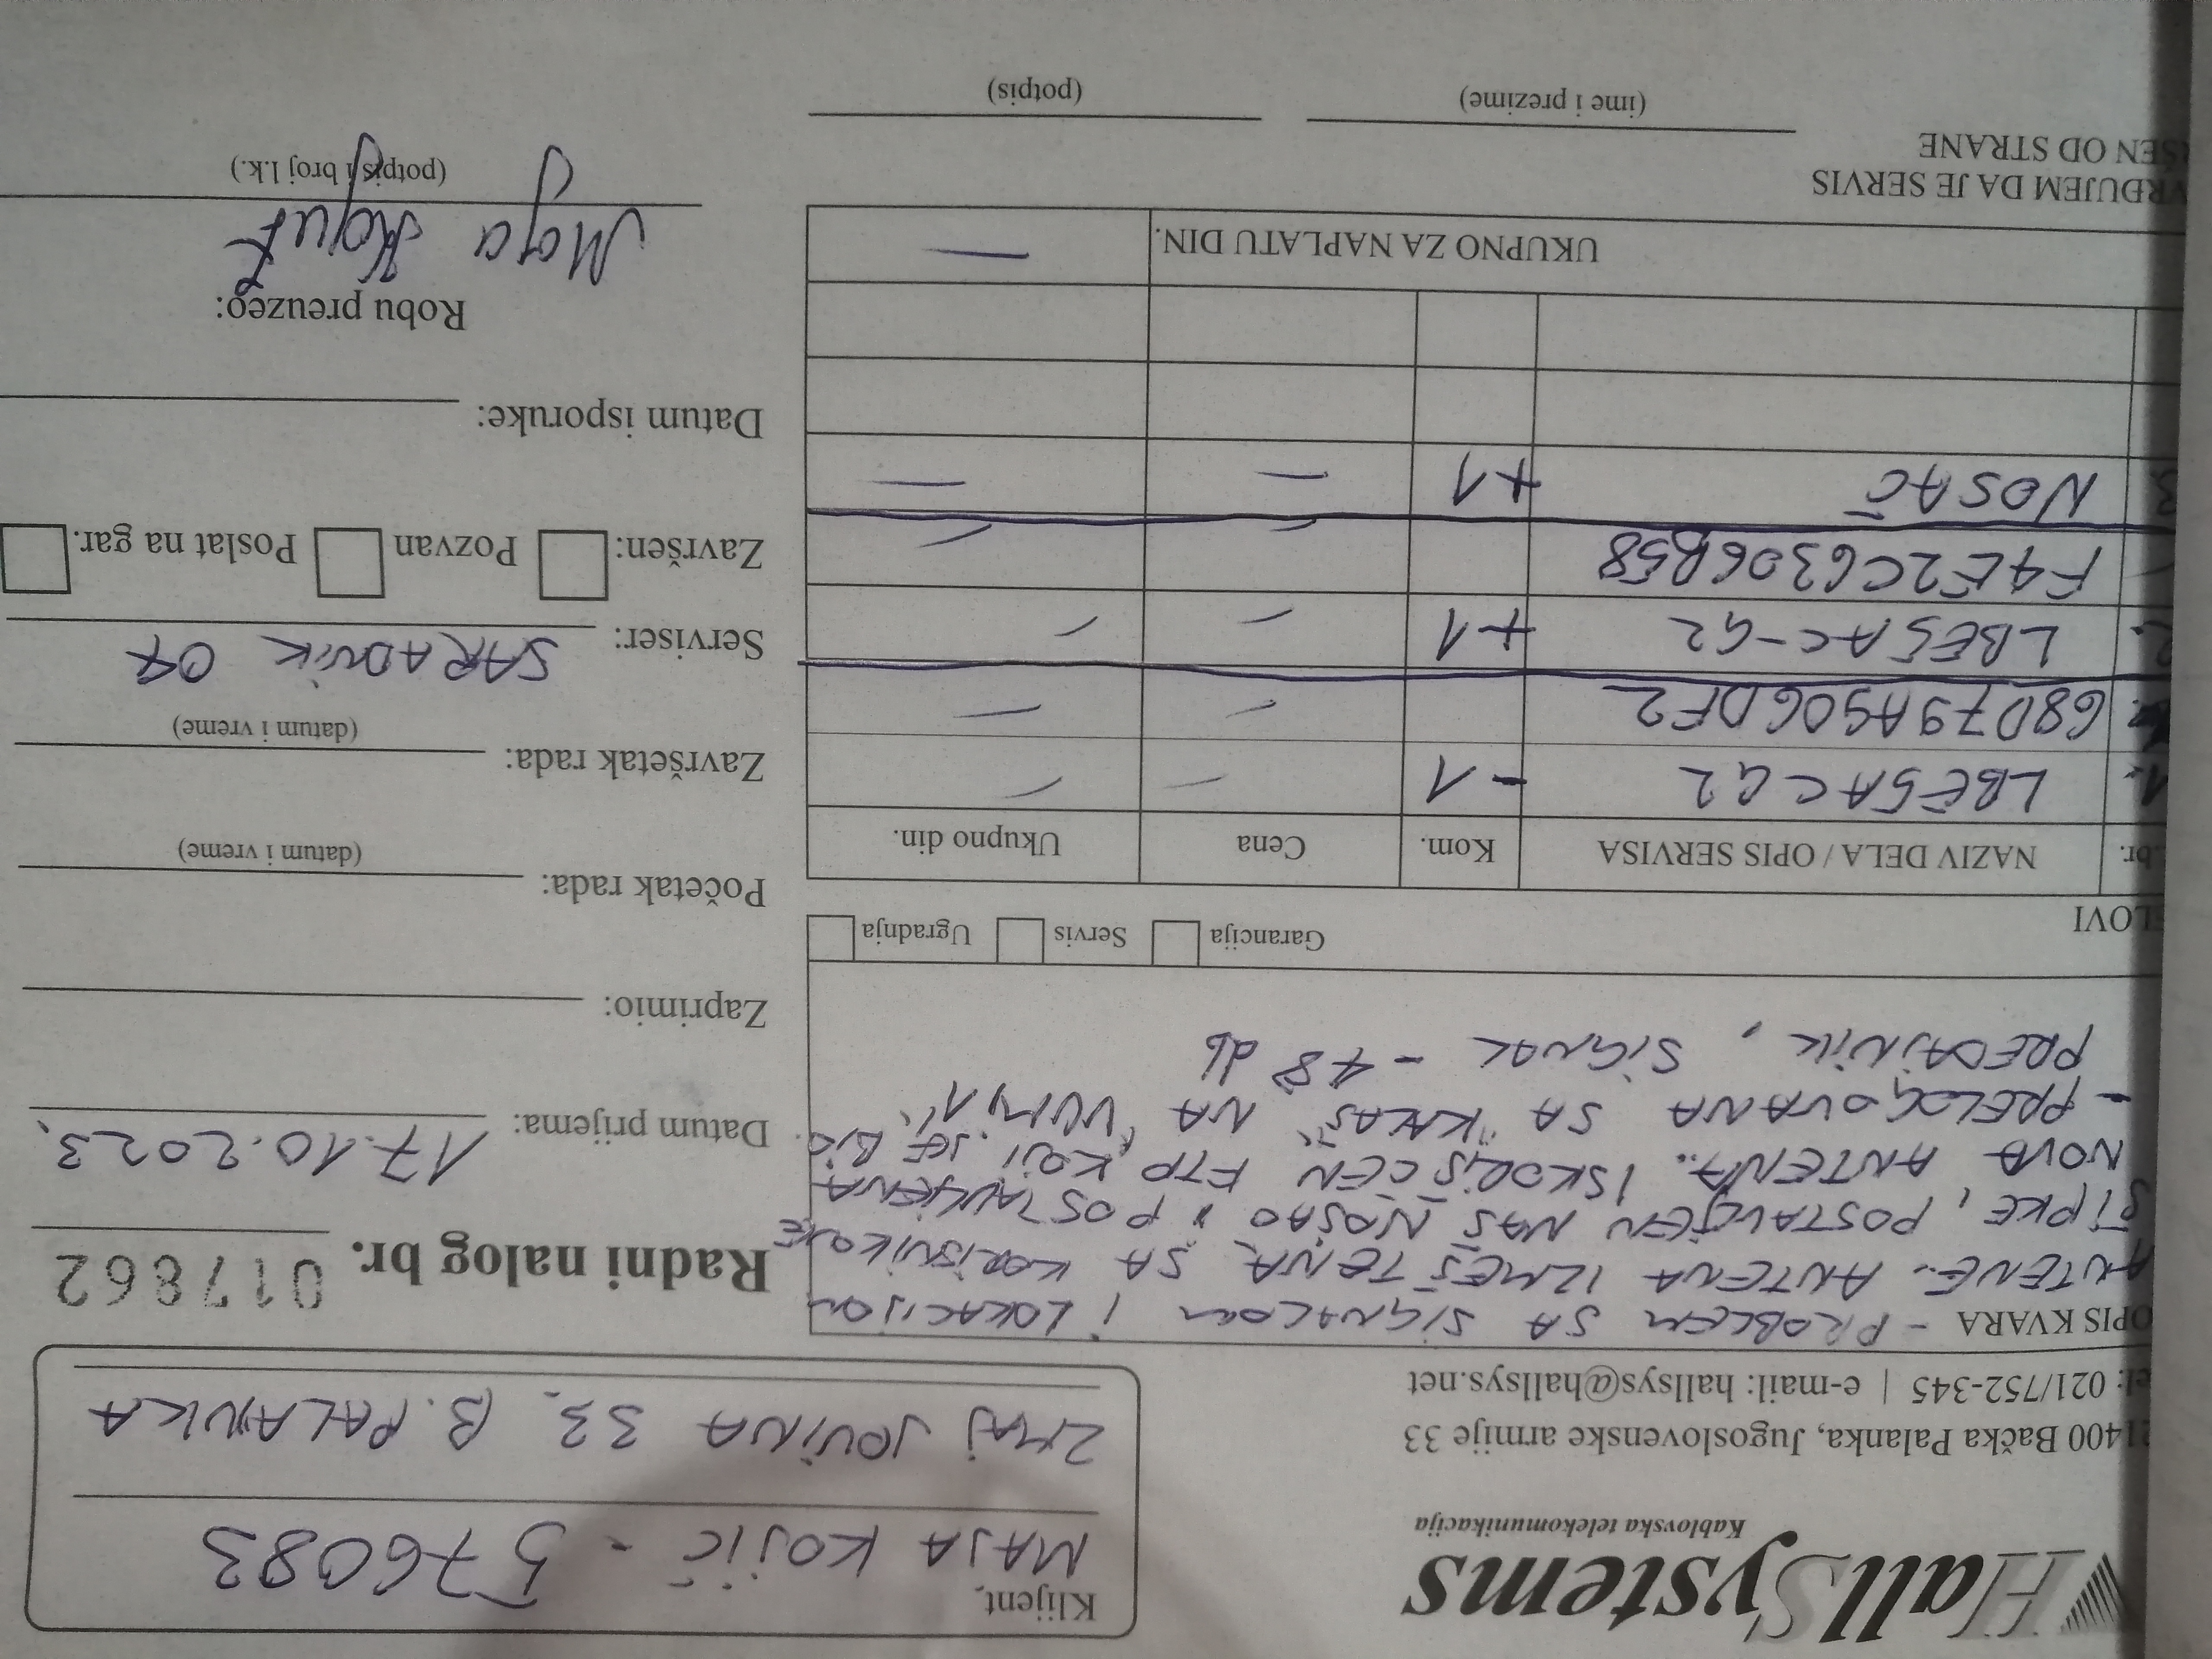 HallSystems
Kablovska telekomunikacija
21400 Bačka Palanka, Jugoslovenske armije 33
el: 021/752-345 | e-mail: hallsys@hallsys.net
Klijent,
MAJA KOJIĆ - 576083
ZMAJ JOVINA 33, B. PALANKA
Radni nalog br. 017862
OPIS KVARA - PROBLEM SA SIGNALOM I LOKACIJOM
ANTENE.. ANTENA IZMEŠTENA SA KORISNIKOVE
ŠIPKE, POSTAVLJEN NAŠ NOSAČ I POSTAVLJENA
NOVA ANTENA.. ISKORIŠĆEN FTP KOJI JE BIO.
- PRELOGOVANA SA "KLAS" NA "VUM1"
PREDAJNIK, SIGNAL -48 db
Datum prijema: 17.10.2023.
Zaprimio:
Početak rada:
(datum i vreme)
Završetak rada:
(datum i vreme)
Serviser: SARADNIK 07
Završen: Pozvan Poslat na gar.
Datum isporuke:
Robu preuzeo:
Maja
(potpis i broj l.k.)
ELOVI Garancija Servis Ugradnja
.br. NAZIV DELA / OPIS SERVISA Kom. Cena Ukupno din.
1. LBE5ACG2 -1 — —
68D79A50GDF2 — —
2. LBE5AC-G2 +1 — —
F4E2C6306B58 —
3. NOSAČ +1 — —
UKUPNO ZA NAPLATU DIN. —
VRĐUJEM DA JE SERVIS
ŠEN OD STRANE
(ime i prezime) (potpis)